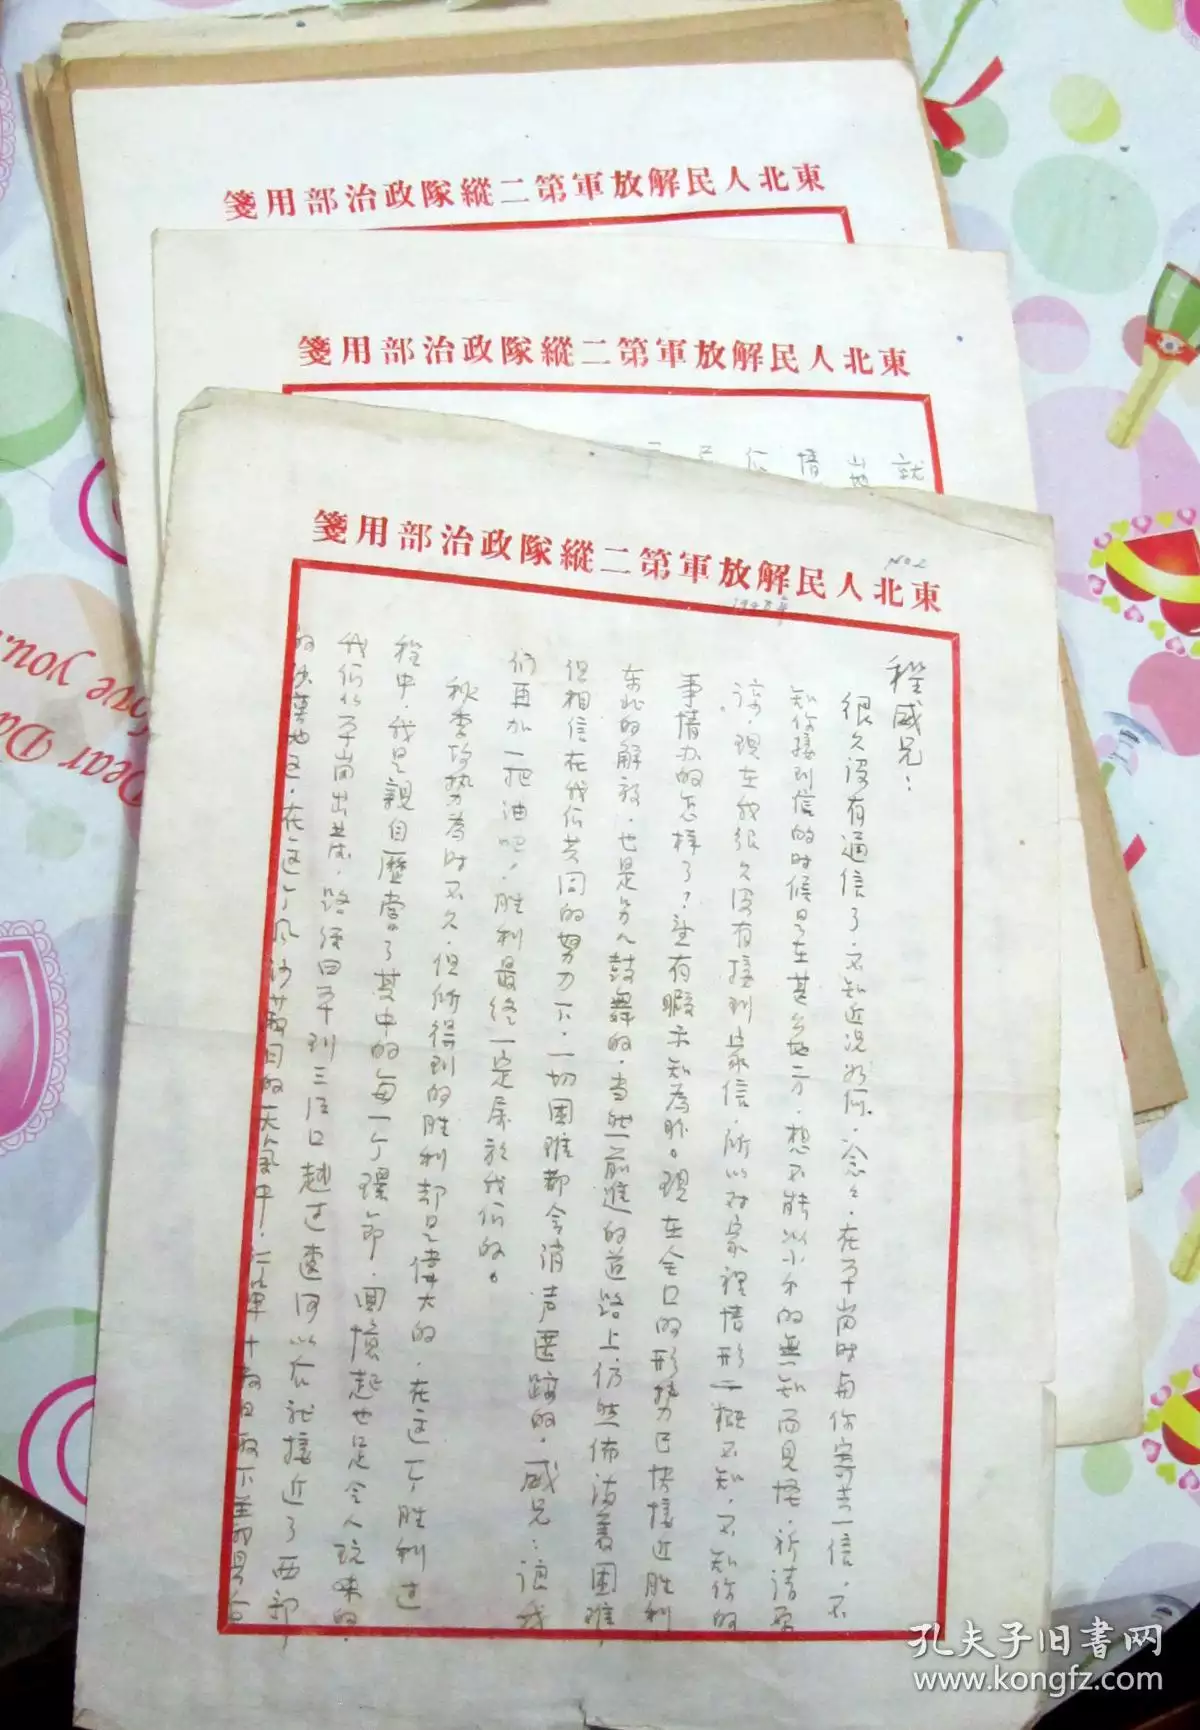 東北人民解放軍第二縱隊政治部用箋
東北人民解放軍第二縱隊政治部用箋
就
情
東北人民解放軍第二縱隊政治部用箋
NO2
程威兄：
很久没有通信了，不知近况如何，念々，在平崗时与你寄去一信，不
知你接到信的时候是在甚広地方，想不能以小弟的無知而見怪，祈請原
諒，現在我很久没有接到家信，所以对家裡情形一概不知，不知你的
事情办的怎樣了？望有暇示知為盼。現在全口的形势已快接近胜利
东北的解放，也是另人鼓舞的，当然前進的道路上仍然佈满着困难，
但相信在我们共同的努力下，一切困难都会消声匿跡的，威兄：让我
们再加一把油吧！胜利最终一定属於我们的。
秋季攻势為时不久，但所得到的胜利却是偉大的，在这个胜利过
程中，我是親自歷嘗了其中的每一个環節，回憶起也是令人玩味的，
我们从平崗出发，路经四平到三江口越过遼河以后就接近了西部
的沙漠地区，在这个风沙蔽目的天氣中，行軍十数日
孔夫子旧書网
www.kongfz.com
Dear Da
love you...